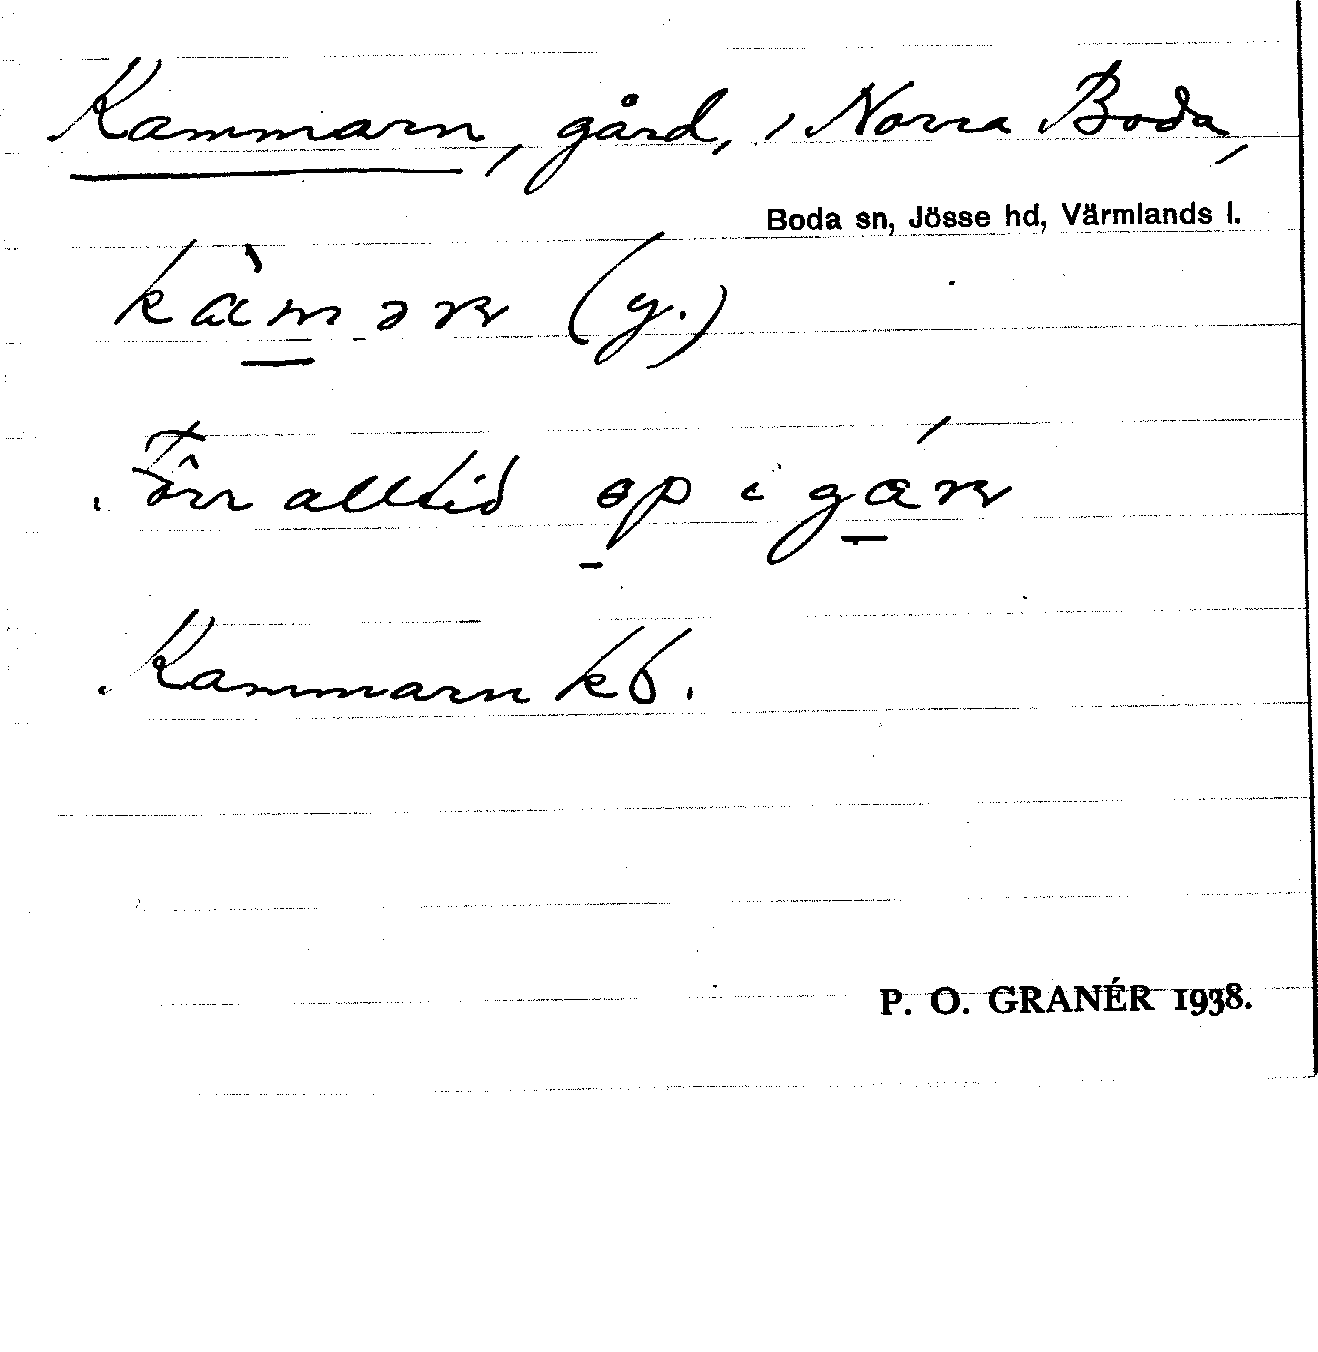 Kammarn, gård, i Norra Boda,
Boda sn, Jösse hd, Värmlands l.
kàmər (y.)
Förr alltid ɵp i gáɳ
Kammarn kb.
P. O. GRANÉR 1938.